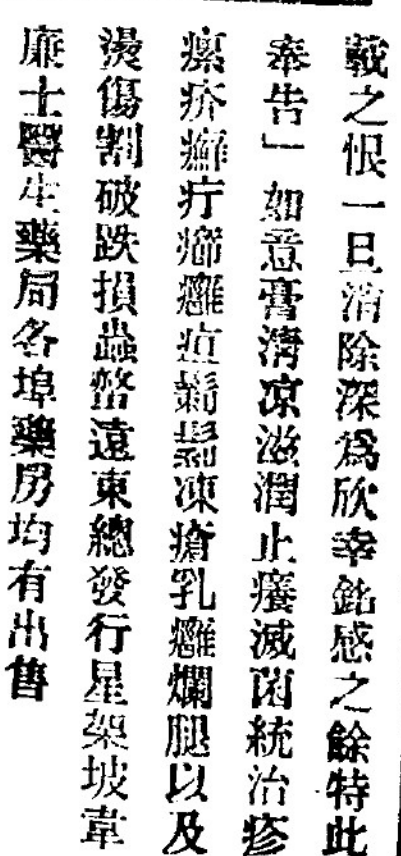 載之恨一旦消除深爲欣幸銘感之餘特此
奉告」如意膏淸凉滋潤止癢滅菌統治疹
瘰疥癬疔癤癰疽凍瘡乳癰爛腿以及
燙傷割破跌損蟲螫遠東總發行星架坡韋
廉士醫生藥局各埠藥房均有出售